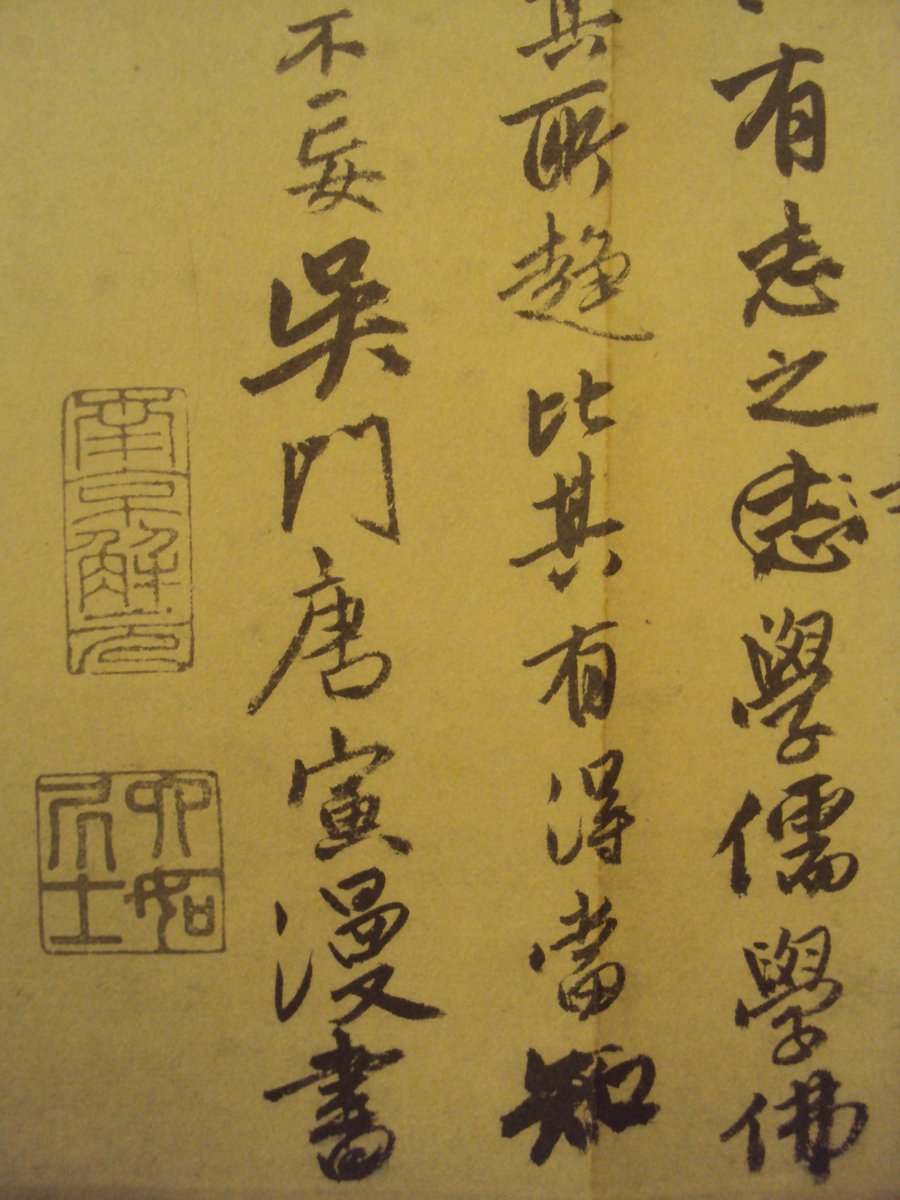 有志之志學儒學佛
其所趨比其有得當知
不妄吳門唐寅漫書
南京解元
六如居士